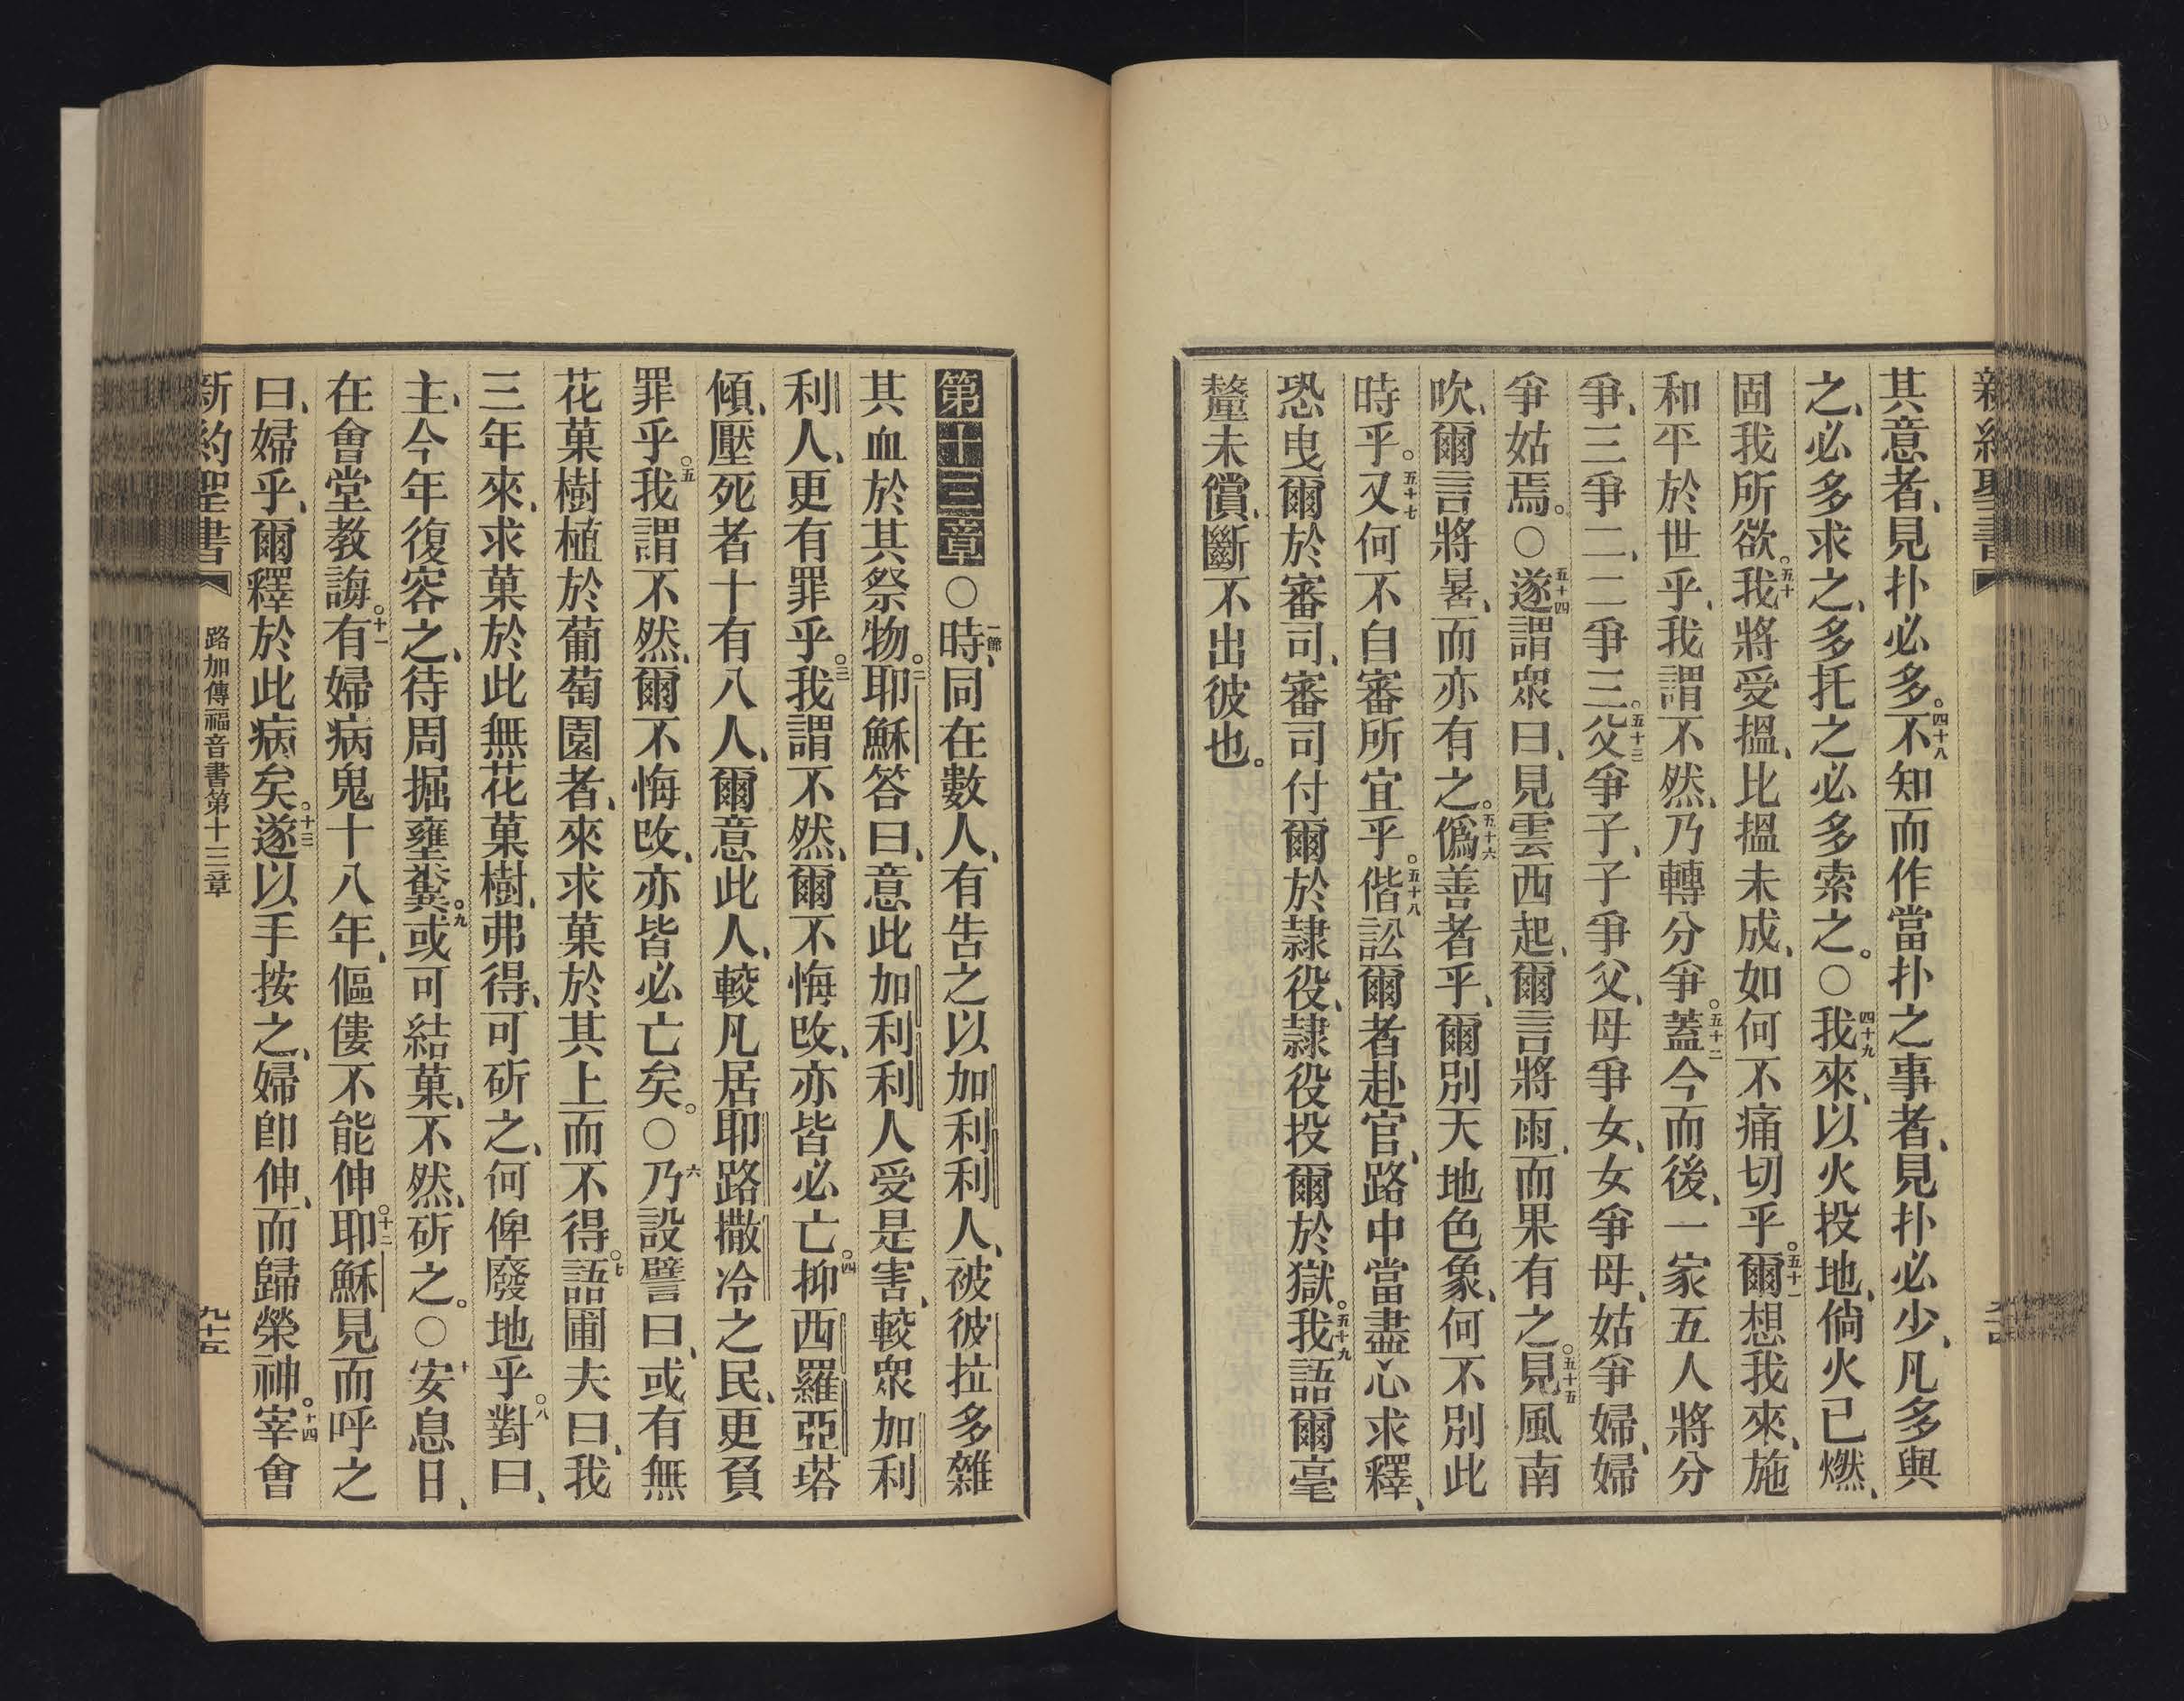 新約聖書
其意者、見扑必多。四十八不知而作當扑之事者、見扑必少、凡多與
之、必多求之、多托之必多索之。○四十九我來、以火投地、倘火已燃、
固我所欲。五十我將受搵、比搵未成、如何不痛切乎。五十一爾想我來、施
和平於世乎、我謂不然、乃轉分爭。五十二蓋今而後、一家五人將分
爭、三爭二、二爭三。五十三父爭子、子爭父、母爭女、女爭母、姑爭婦、婦
爭姑焉。○五十四遂謂眾曰、見雲西起、爾言將雨、而果有之。五十五見風南
吹、爾言將暑、而亦有之。五十六僞善者乎、爾別天地色象、何不別此
時乎。五十七又何不自審所宜乎。五十八偕訟爾者赴官、路中當盡心求釋、
恐曳爾於審司、審司付爾於隷役、隷役投爾於獄。五十九我語爾毫
釐未償、斷不出彼也。
第十三章○一節時、同在數人、有告之以加利利人、被彼拉多雜
其血於其祭物。二耶穌答曰、意此加利利人受是害、較眾加利
利人、更有罪乎。三我謂不然、爾不悔改、亦皆必亡。四抑西羅亞塔
傾、壓死者十有八人、爾意此人、較凡居耶路撒冷之民、更負
罪乎。五我謂不然、爾不悔改、亦皆必亡矣。○六乃設譬曰、或有無
花菓樹植於葡萄園者、來求菓於其上而不得。七語圃夫曰、我
三年來、求菓於此無花菓樹、弗得、可斫之、何俾廢地乎。八對曰、
主、今年復容之、待周掘壅糞。九或可結菓、不然、斫之。○十安息日、
在會堂教誨。十一有婦病鬼十八年、傴僂不能伸。十二耶穌見而呼之
曰、婦乎、爾釋於此病矣。十三遂以手按之、婦卽伸、而歸榮神。十四宰會
新約聖書 路加傳福音書第十三章 九十五